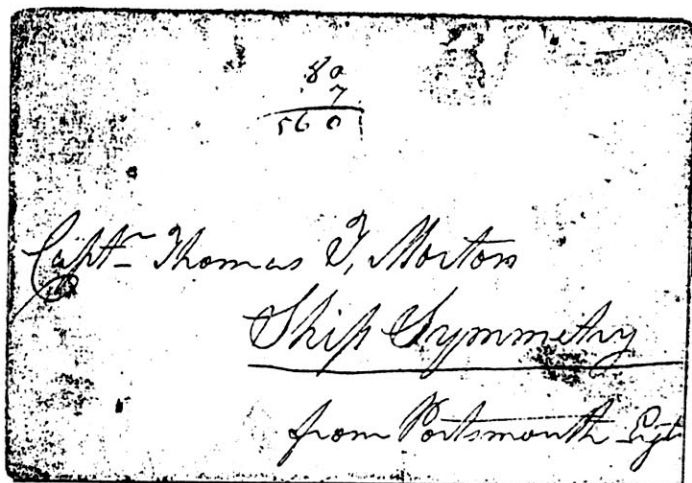 80
7
560
Captn Thomas F, Morton
Ship Symmetry
from Portsmouth